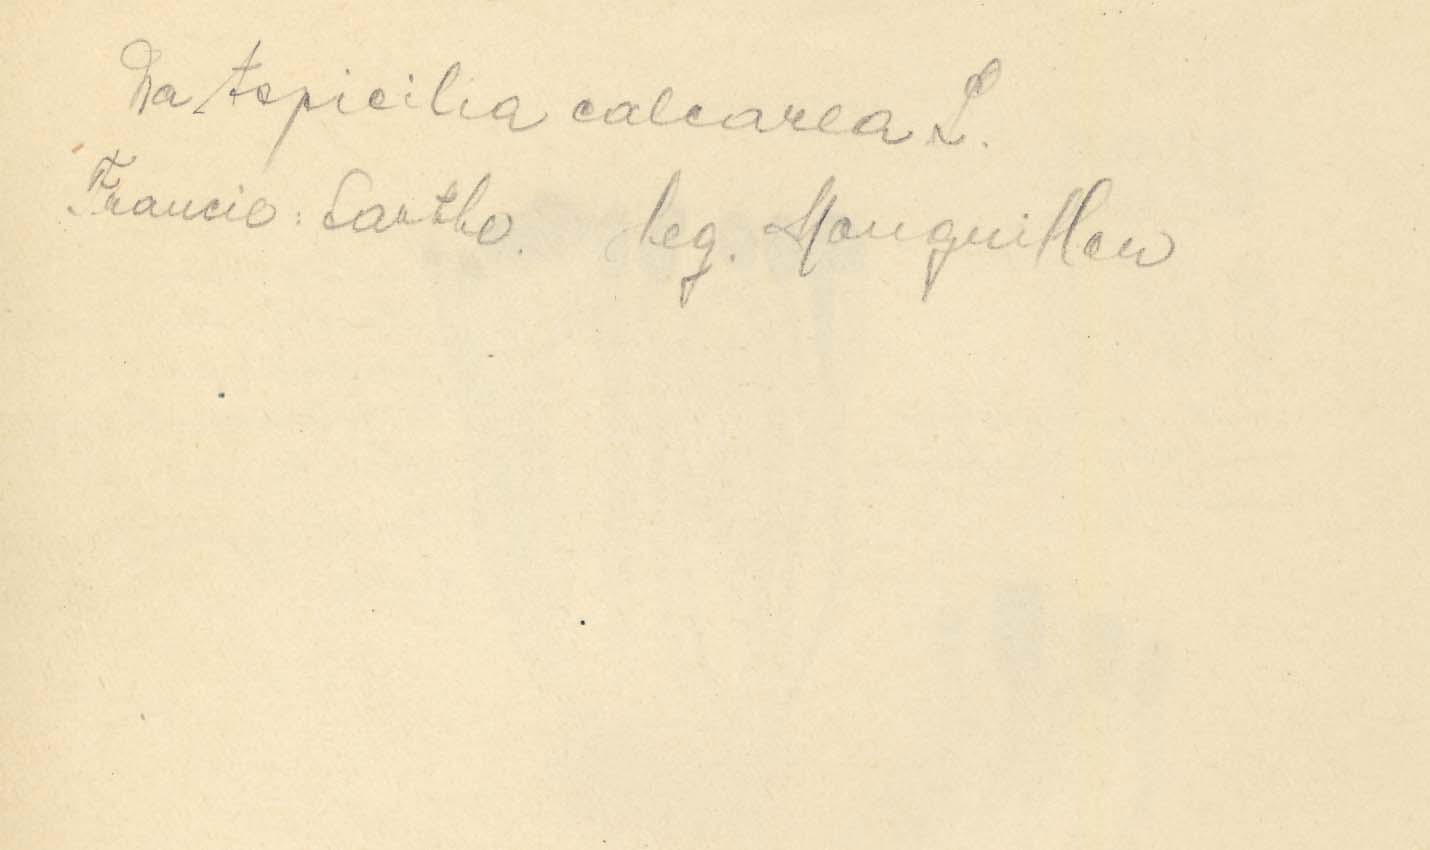 Na Aspicilia calcarea L.
Francie: Sarthe. leg. Monguillon